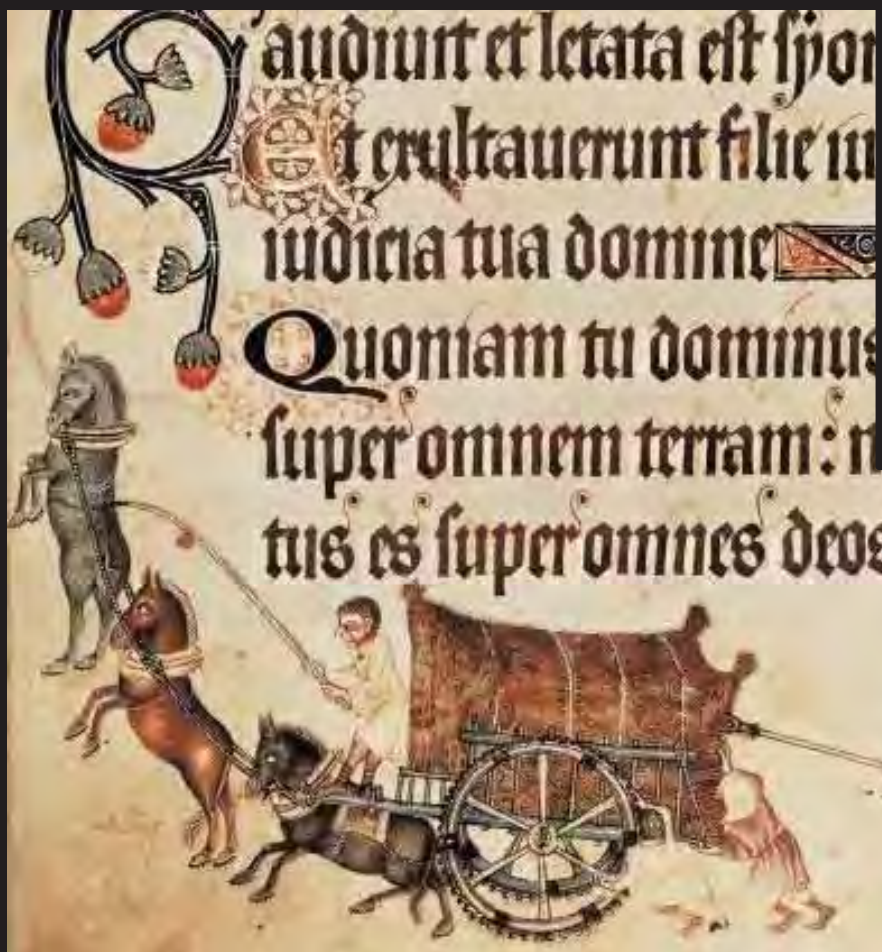 audiuit et letata est syon
Et exultauerunt filie iu
iudicia tua domine
Quoniam tu dominus
super omnem terram: n
tus es super omnes deos